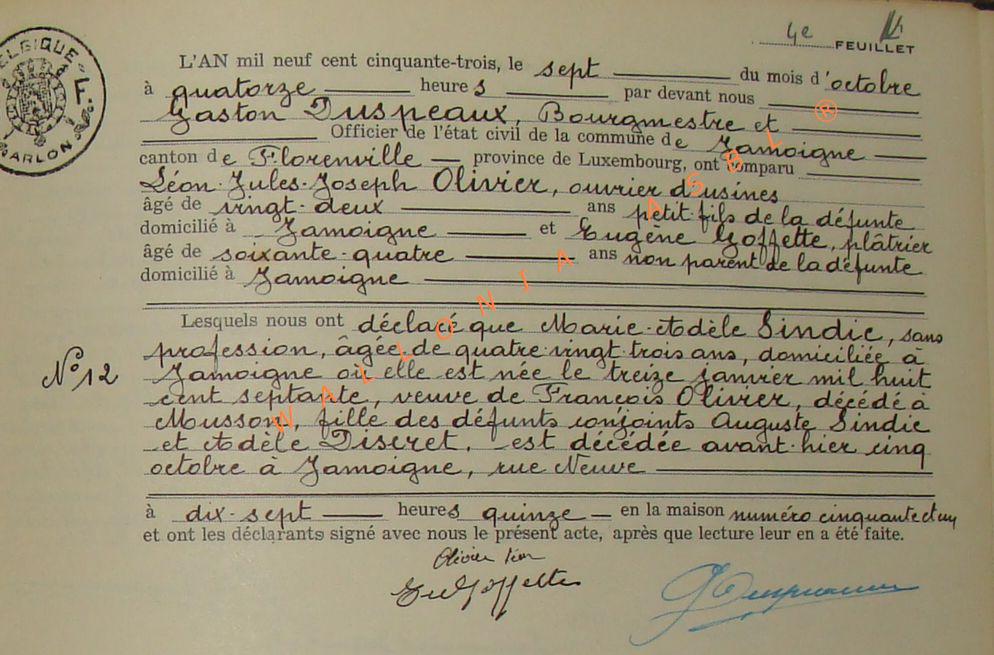 4e
FEUILLET
BELGIQUE F.
ARLON
L'AN mil neuf cent cinquante-trois, le sept du mois d'octobre
à quatorze heures par devant nous
Gaston Duspeaux, Bourgmestre et
Officier de l'état civil de la commune de Jamoigne
canton de Florenville province de Luxembourg, ont comparu
Léon-Jules-Joseph Olivier, ouvrier d'usines
âgé de vingt-deux ans petit-fils de la défunte
domicilié à Jamoigne et Eugène Goffette, plâtrier
âgé de soixante-quatre ans non parent de la défunte
domicilié à Jamoigne
Lesquels nous ont déclaré que Marie-Adèle Sindic, sans
profession, âgée de quatre-vingt-trois ans, domiciliée à
N° 12
Jamoigne où elle est née le treize janvier mil huit
cent septante, veuve de François Olivier, décédé à
Musson, fille des défunts conjoints Auguste Sindic
et Adèle Discret, est décédée avant-hier cinq
octobre à Jamoigne, rue Neuve
à dix-sept heures quinze en la maison numéro cinquante et un
et ont les déclarants signé avec nous le présent acte, après que lecture leur en a été faite.
Olivier Léon
Eu Goffette
WALLONIA ASBL ®